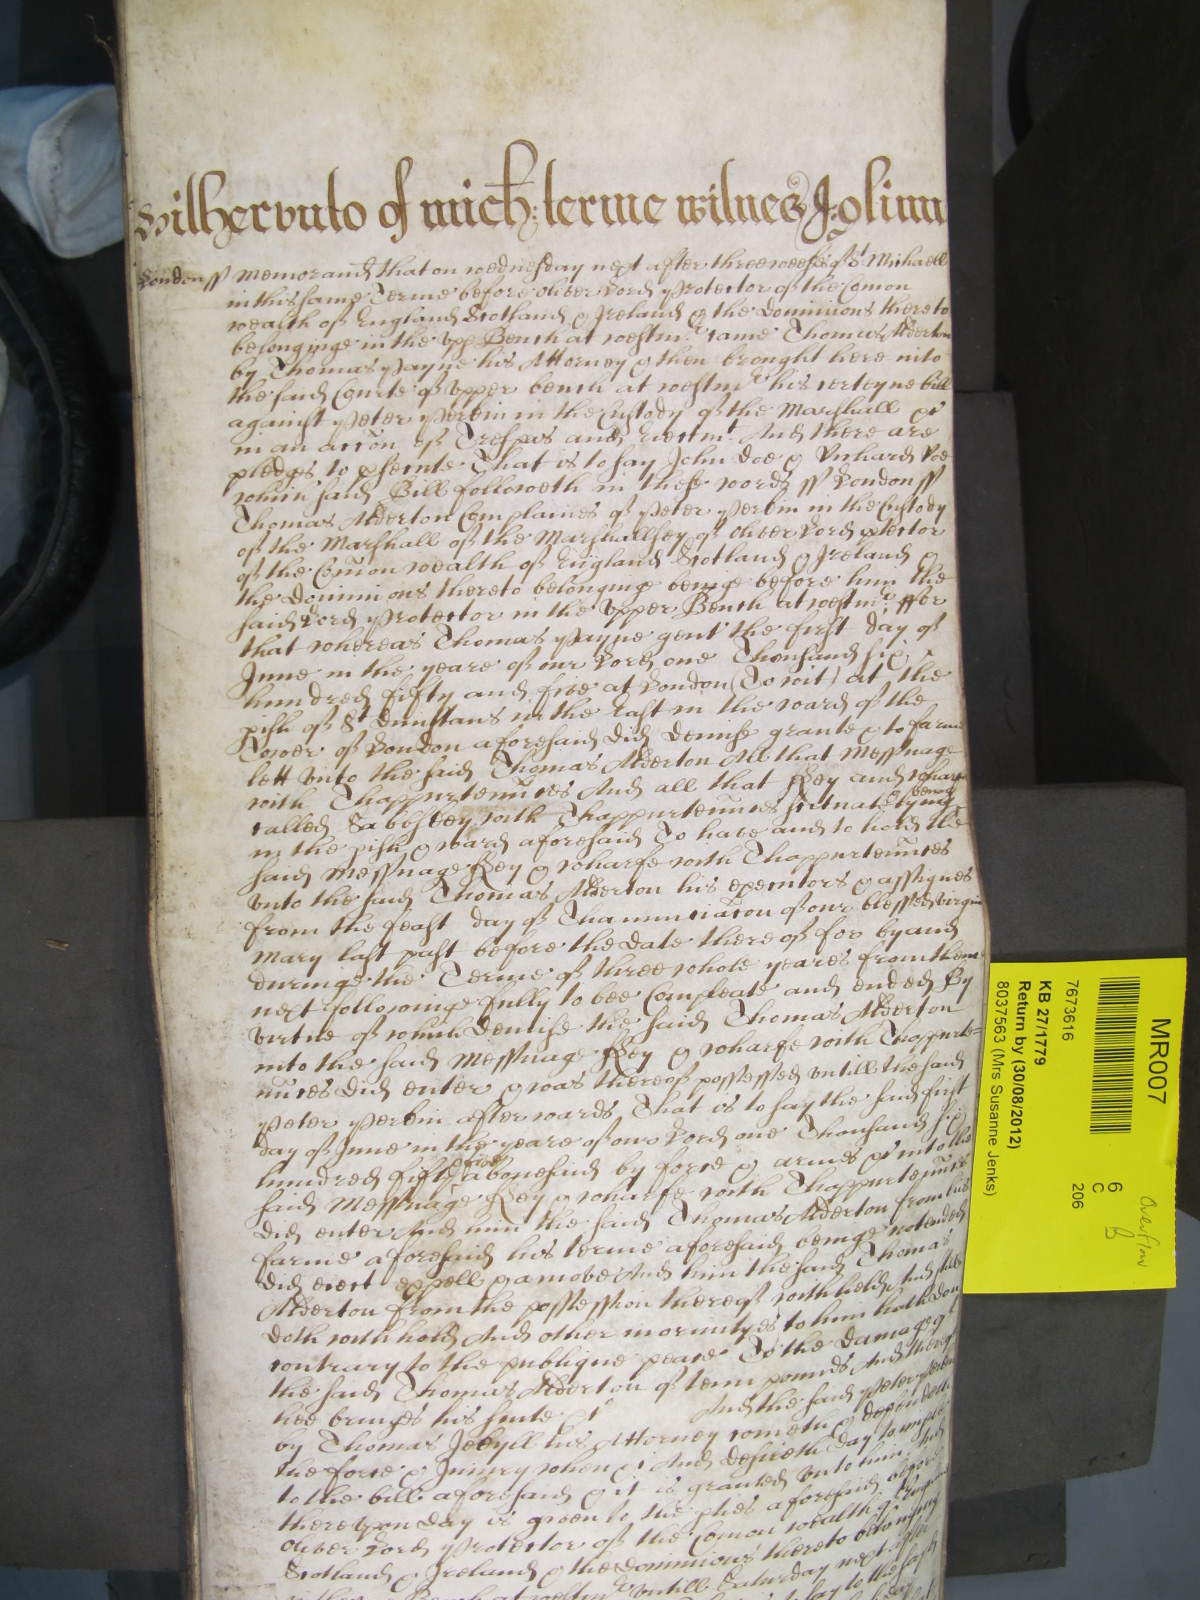 Still hervnto of mich: terme witnes J: Glinn
London ss Memorand that on wednesday next after three weekes of St Michaell
in this same Terme before Oliver Lord Protector of the Comon
wealth of England Scotland & Ireland & the Dominions thereto
belonginge in the vpp Bench at westmr came Thomas Alderton
by Thomas Payne his Attorney & then brought here into
the said Courte of vpper bench at westmr his certeyne bill
against Peter Perbin in the Custody of the Marshall &c
in an accon of Trespas and Eiectmt And there are
pledges to psecute That is to say John Doe & Richard Roe
which said Bill followeth in these words ss London ss
Thomas Alderton Complaines of Peter Perbin in the Custody
of the Marshall of the Marshallsey of Oliver Lord ptector
of the Comon wealth of England Scotland & Ireland &
the Dominions thereto belonging beinge before him the
said Lord Protector in the Vpper Bench at westmr ffor
that whereas Thomas Payne gent the first day of
June in the yeare of our Lord one Thousand six
hundred fifty and five at London (To wit) at the
pish of St Dunstans in the East in the ward of the
Tower of London aforesaid did demise grante & to farme
lett vnto the said Thomas Alderton All that Messuage
with Thappurtennces And all that Key and wharfe
called Sabbs Key with Thappurtennces scituate lying & being
in the pish & ward aforesaid To have and to hold the
said Messuage Key & wharfe with Thappurtennces
vnto the said Thomas Alderton his executors & assignes
from the feast day of Thanunciacon of our blessed virgin
Mary last past before the date thereof for by and
duringe the Terme of three whole yeares from thence
next followinge fully to bee Compleate and ended By
virtue of which demise the said Thomas Alderton
into the said Messuage Key & wharfe with Thappurte
nnces did enter & was thereof possessed vntill the said
Peter Perbin afterwards That is to say the said first
day of June in the yeare of our Lord one Thousand six
hundred fifty five abovesaid by force & armes &c into the
said Messuage Key & wharfe with Thappurtennces
did enter And him the said Thomas Alderton from his
farme aforesaid his terme aforesaid beinge not ended
did eiect expell & amove And him the said Thomas
Alderton from the possession thereof withheld And still
doth withhold And other iniuries to him hath don
contrary to the publique peace To the damage of
the said Thomas Alderton of tenn pounds And thereof
hee bringes his suite &c And the said Peter Perbin
by Thomas Jekyll his Attorney cometh & defendeth
the force & Iniury when &c And desireth day to imple
to the bill aforesaid & it is granted vnto him And
therevpon day is given to the pties aforesaid before
Oliver Lord Protector of the Comon wealth of England
Scotland & Ireland & the Dominions thereto belonging
vntill Saturday next after
MR007
7673616
KB 27/1779
Return by (30/08/2012)
8037563 (Mrs Susanne Jenks)
6
C
206
Overflow
B